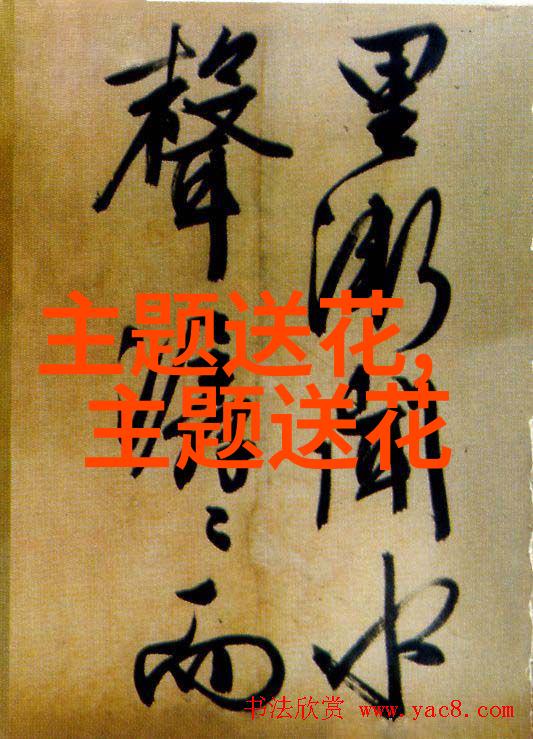 里漸聞水
聲潺々而
主题送花,
主题送花
书法欣赏 www.yac8.com